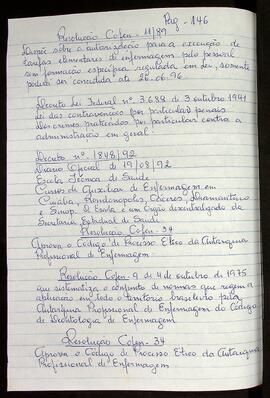 Pag - 146
Resolução Cofen - 111/89
Dispõe sobre a autorização para a execução de
tarefas elementares de enfermagem pelo pessoal
sem formação específica regulada em lei, somente
poderá ser concedida até 26-06-96.
Decreto Lei Federal nº 3.688 de 3 outubro 1941
Lei das contravenções (por particular) penais.
Dos crimes praticados por particular contra a
administração em geral.
Decreto nº 1848/92
Diário Oficial de 19/08/92
Escola Técnica de Saúde
Cursos de Auxiliar de Enfermagem em
Cuiabá, Rondonópolis, Cáceres, Diamantino
e Sinop. A Escola é um órgão descentralizado da
Secretaria Estadual de Saúde
Resolução Cofen - 34
Aprova o Código de Processo Ético da Autarquia
Profissional de Enfermagem
Resolução Cofen - 9 de 4 de outubro de 1975
que sistematiza o conjunto de normas que regem a
aplicação em todo o território brasileiro pela
Autarquia Profissional de Enfermagem do Código
de Deontologia de Enfermagem
Resolução Cofen - 34
Aprova o Código de Processo Ético da Autarquia
Profissional de Enfermagem